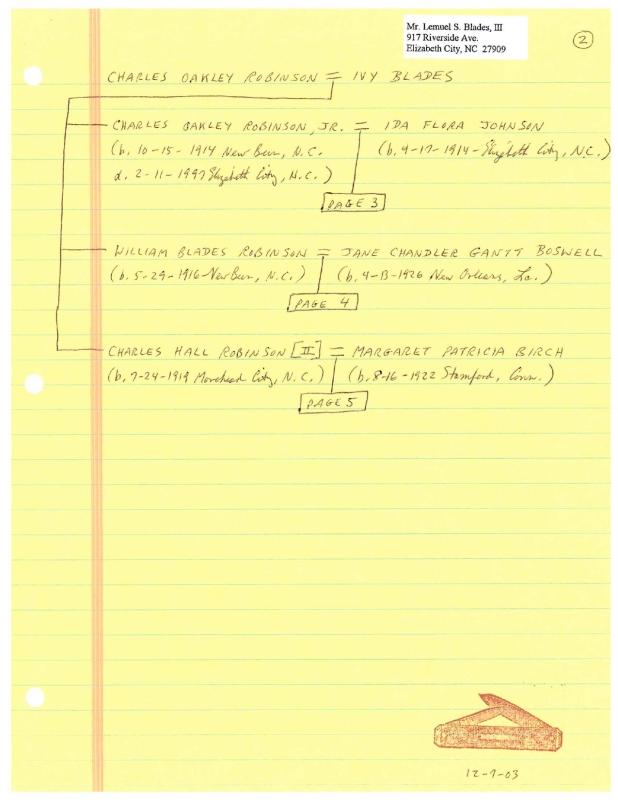 Mr. Lemuel S. Blades, III
917 Riverside Ave.
Elizabeth City, NC 27909
2
CHARLES OAKLEY ROBINSON = IVY BLADES
CHARLES OAKLEY ROBINSON, JR. = IDA FLORA JOHNSON
(b. 10-15-1914 New Bern, N.C. (b. 4-17-1914 - Elizabeth City, N.C.)
d. 2-11-1997 Elizabeth City, N.C.)
PAGE 3
WILLIAM BLADES ROBINSON = JANE CHANDLER GANTT BOSWELL
(b. 5-29-1916 - New Bern, N.C.) (b. 4-13-1926 New Orleans, La.)
PAGE 4
CHARLES HALL ROBINSON [II] = MARGARET PATRICIA BIRCH
(b. 7-24-1919 Morehead City, N.C.) (b. 8-16-1922 Stamford, Conn.)
PAGE 5
12-7-03